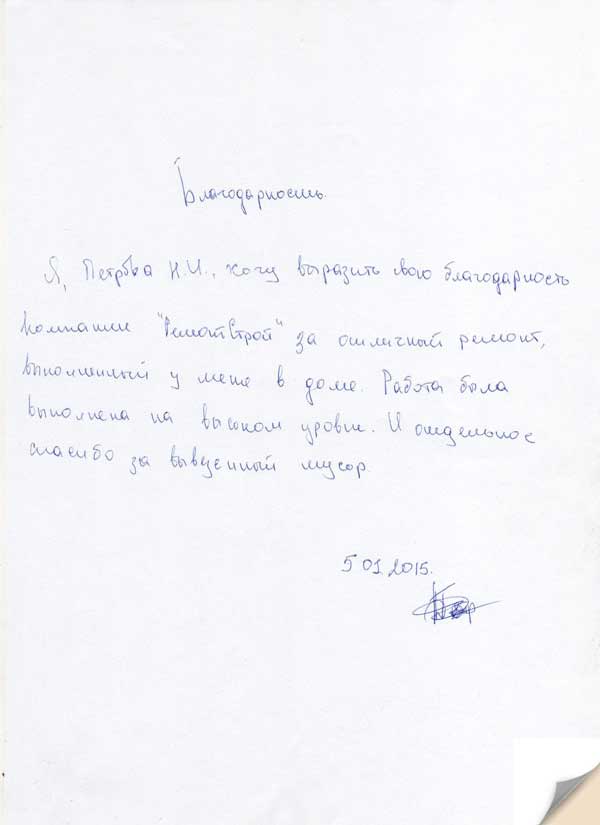 Благодарность.
Я, Петрова Н.И., хочу выразить свою благодарность
компании "РемонтСтрой" за отличный ремонт,
выполненный у меня в доме. Работа была
выполнена на высоком уровне. И отдельное
спасибо за вывезенный мусор.
5 01.2015.